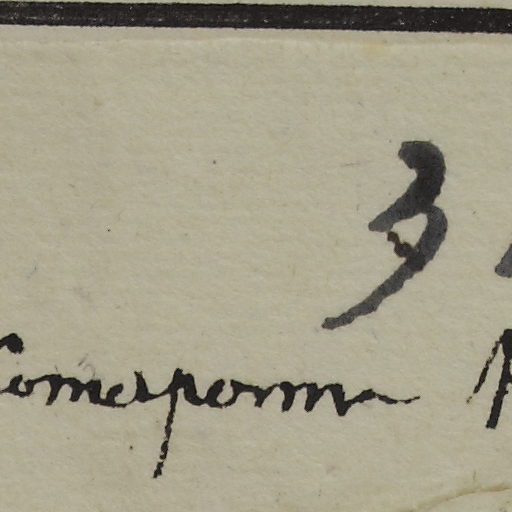 3
Comesperma